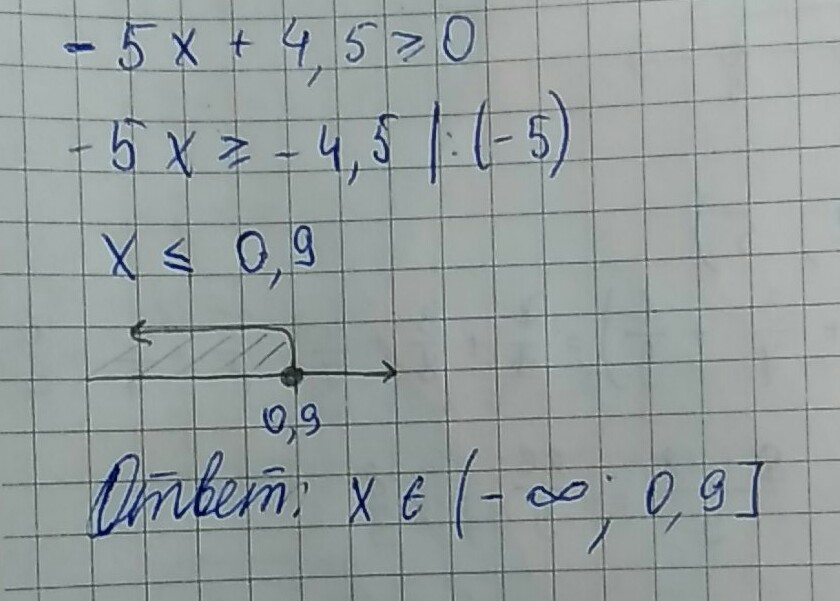 - 5x + 4,5 ≥ 0
-5x ≥ -4,5 |:(-5)
x ≤ 0,9
0,9
Ответ: x ∈ (-∞; 0,9]